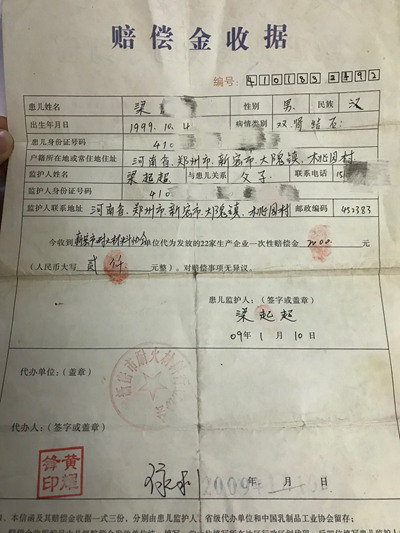 赔偿金收据
编号: 410183 2492
患儿姓名 梁 性别 男 民族 汉
出生年月日 1999.10.4 病情类别 双肾结石
患儿身份证号码 410
户籍所在地或常住地住址 河南省郑州市新密市大隗镇
监护人姓名 梁起超 与患儿关系 父子 联系电话 15
监护人身份证号码 410
监护人联系地址 河南省郑州市新密市大隗镇 邮政编码 452383
今收到 单位代为发放的22家生产企业一次性赔偿金 2000 元
(人民币大写 贰仟 元整)。对赔偿事项无异议。
患儿监护人:(签字或盖章)
梁起超
09年 1月 10日
代办单位:(盖章)
代办人:(签字或盖章)
黄耀锋印
2009年 月 日
1、本信函及其赔偿金收据一式三份,分别由患儿监护人、省级代办单位和中国乳制品工业协会留存;